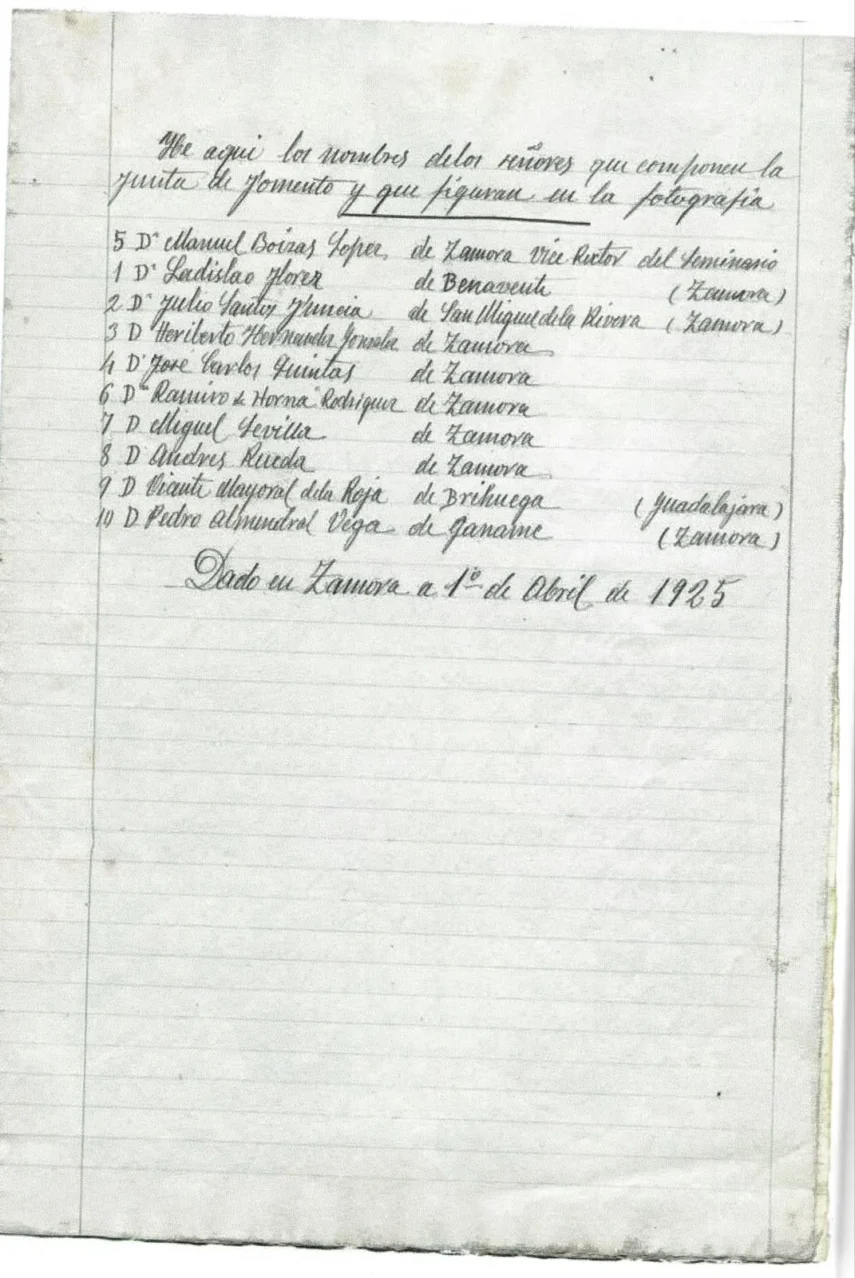 He aqui los nombres delos señores que componen la
Junta de Fomento y que figuran en la fotografia
5 Dn Manuel Boizas Lopez de Zamora Vice Rector del Seminario
1 Dn Ladislao Florez de Benavente (Zamora)
2 Dn Julio Santos de San Miguel dela Rivera (Zamora)
3 D Heriberto Hernandez Gonzalez de Zamora
4 Dn José Carlos Quintas de Zamora
6 Dn Ramiro de "Horna" Rodriguez de Zamora
7 D Miguel Sevilla de Zamora
8 D Andres Rueda de Zamora
9 D Vicente Mayoral dela Roja de Brihuega (Guadalajara)
10 D Pedro Almendral Vega de Ganame (Zamora)
Dado en Zamora a 1º de Abril de 1925